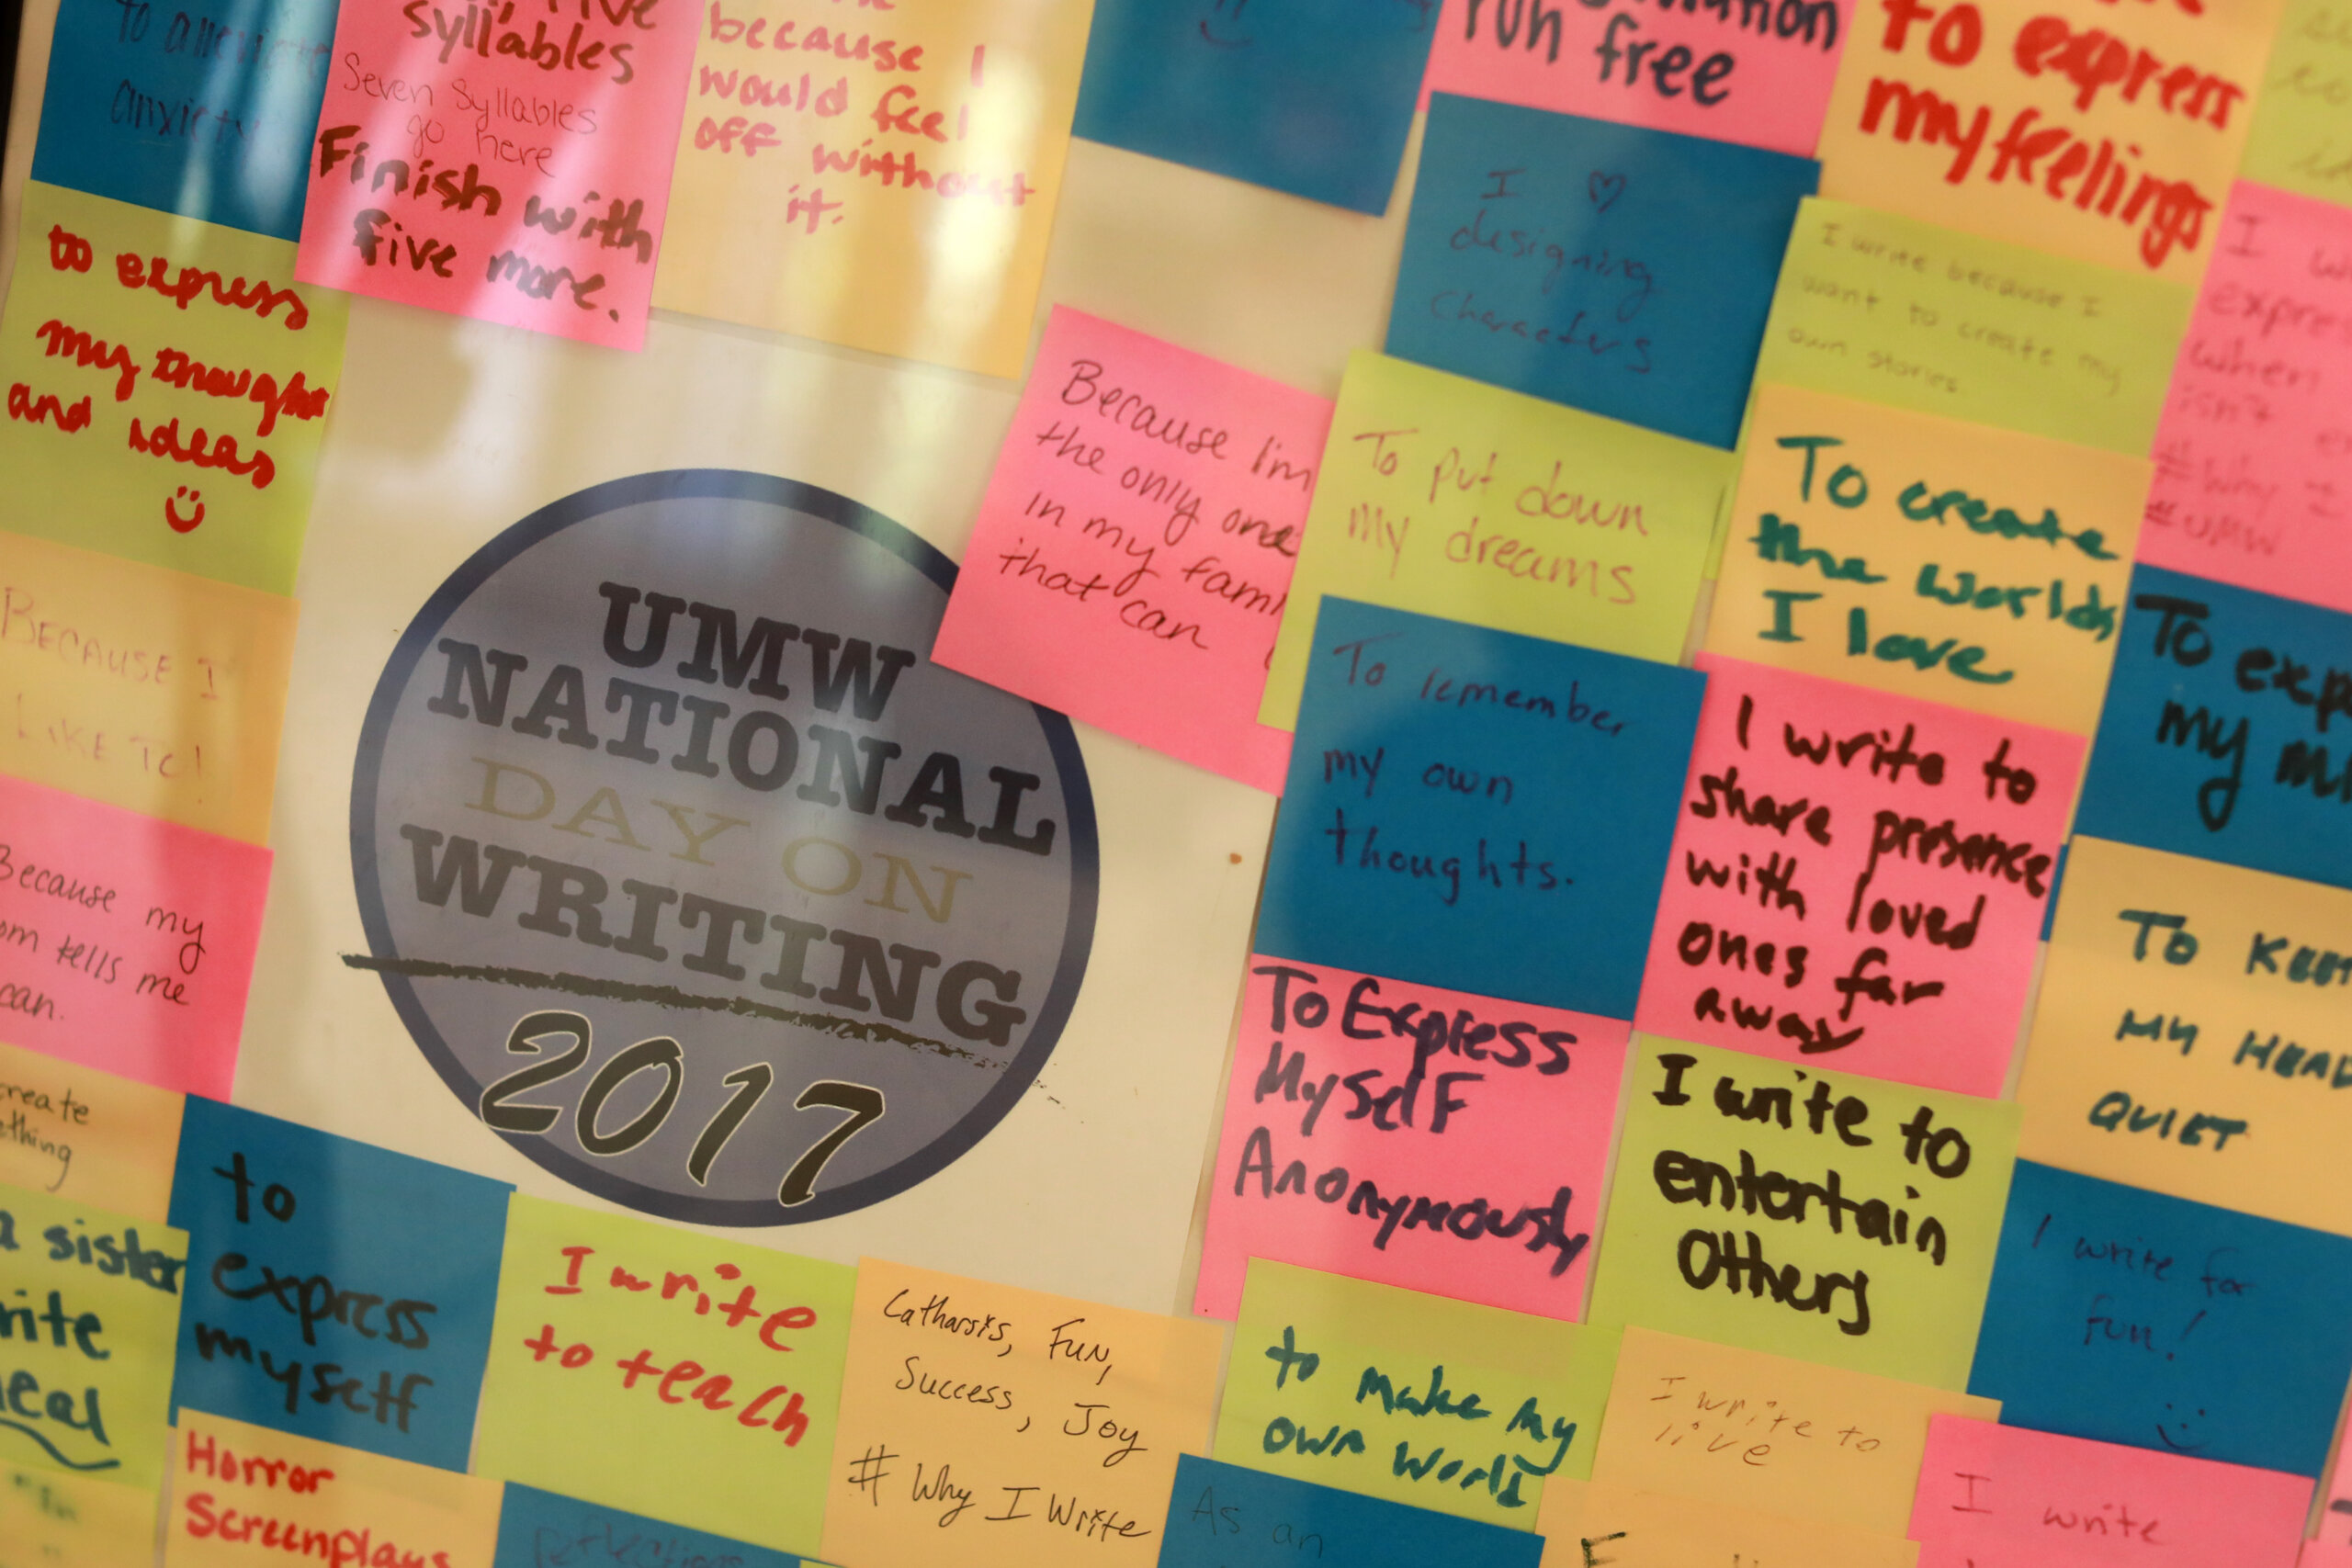 to alleviate
anxiety
syllables
Seven Syllables
go here
Finish with
five more.
because I
would feel
off without
it.
run free
to express
my feelings
I ♡
designing
characters
I write because I
want to create my
own stories.
I
when
isn't
#Why I
#UMW
to express
my thoughts
and ideas
Because I'm
the only one
in my fami
that can
To put down
my dreams
To create
the worlds
I love
BECAUSE I
LIKE TO!
UMW
NATIONAL
DAY ON
WRITING
2017
To remember
my own
thoughts.
I write to
share presence
with loved
ones far
away
To exp
my mi
Because my
om tells me
can.
To Express
Myself
Anonymously
I write to
entertain
others
To KEEP
MY HEAD
QUIET
create
ething
a sister
rite
eal
to
express
myself
I write
to teach
Catharsis, Fun,
Success, Joy
# Why I Write
to make my
own world
I write to
live
I write for
fun!
Horror
Screenplays
Reflections
As an
I write